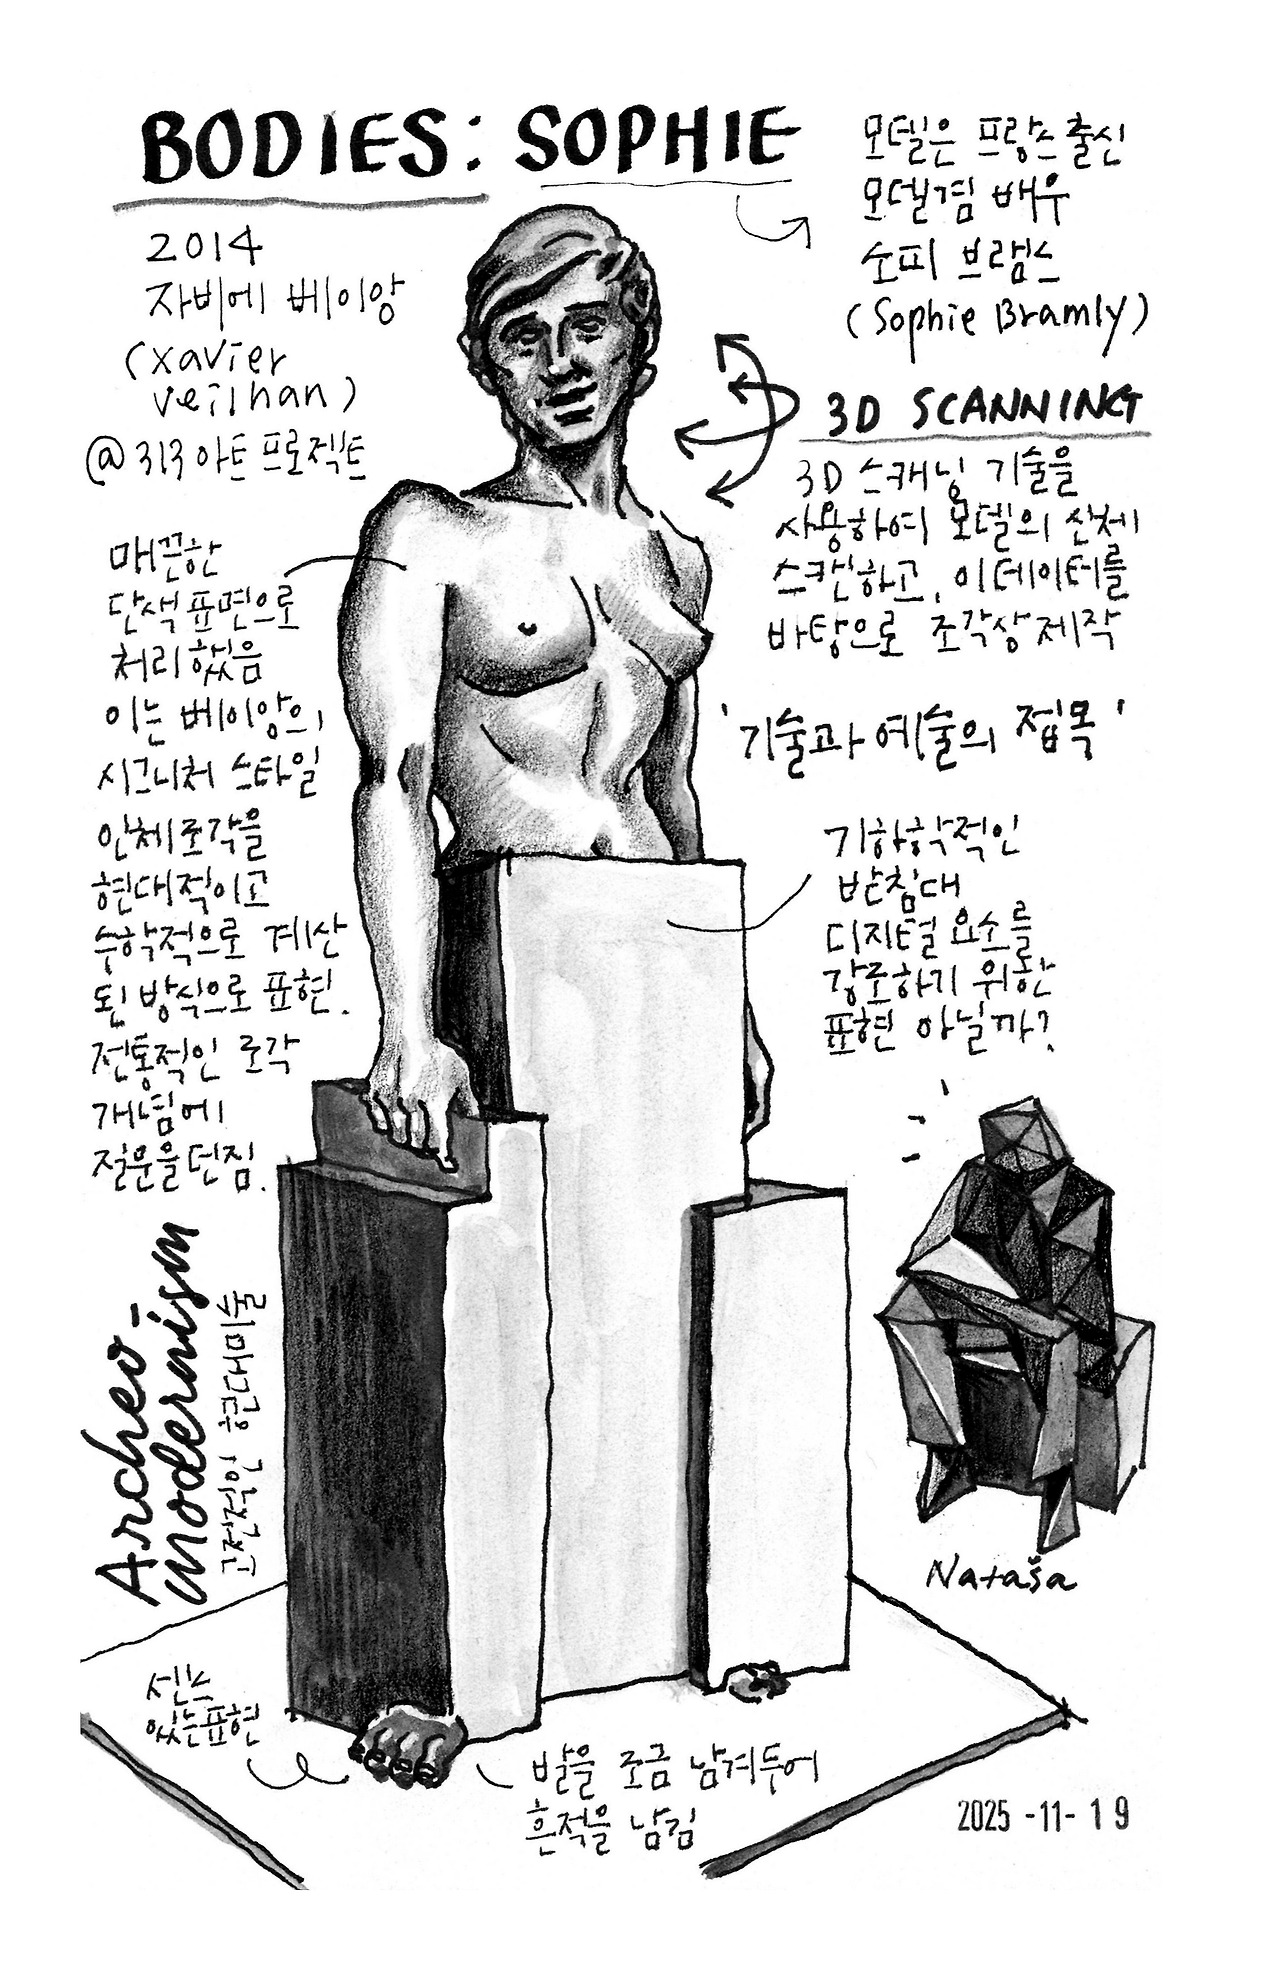 BODIES: SOPHIE
2014
자비에 베이앙
(xavier
veilhan)
@313 아트 프로젝트
모델은 프랑스 출신
모델겸 배우
소피 브램스
(Sophie Bramly)
3D SCANNING
3D 스캐닝 기술을
사용하여 모델의 신체
스캔하고, 이 데이터를
바탕으로 조각상 제작
'기술과 예술의 접목'
매끈한
단색 표면으로
처리했음
이는 베이앙의
시그니처 스타일
인체조각을
현대적이고
수학적으로 계산
된 방식으로 표현.
전통적인 조각
개념에
질문을 던짐.
기하학적인
받침대
디지털 요소를
강조하기 위한
표현 아닐까?
Archeo-
modernism
고전적인 현대미술
Nataša
센스
있는 표현
발을 조금 남겨두어
흔적을 남김
2025 -11- 19